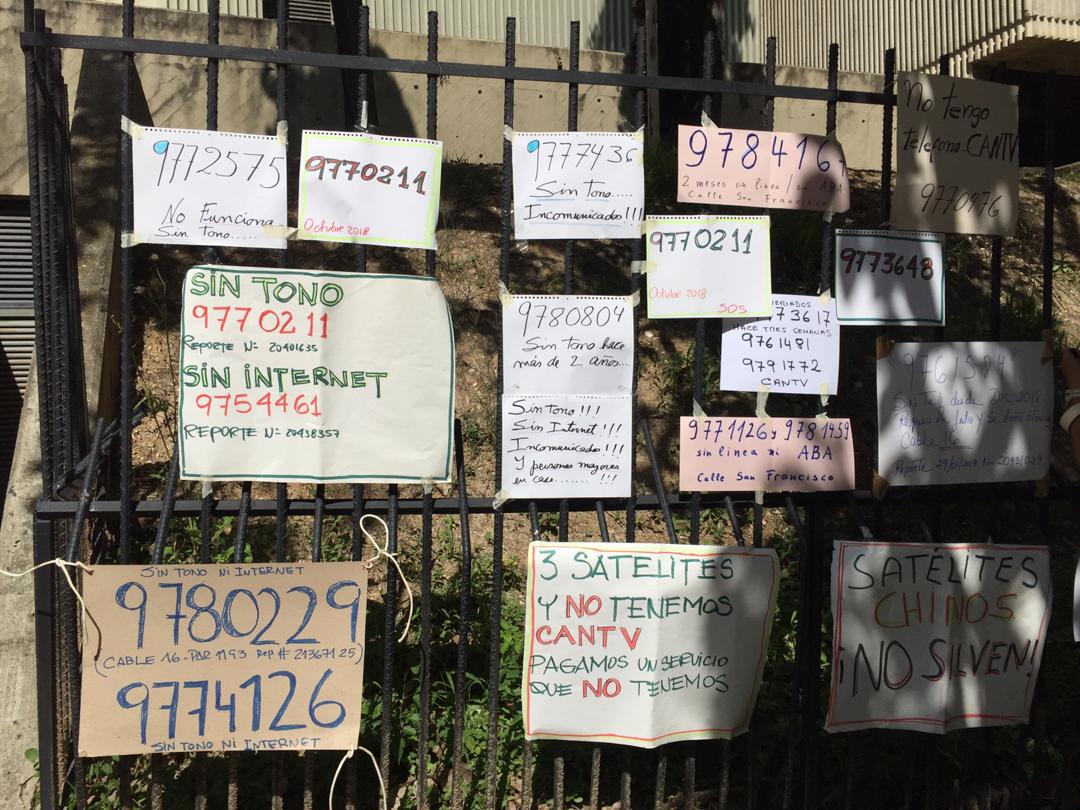 9772575
No Funciona
Sin Tono.....
9770211
Octubre 2018
9777436
Sin Tono....
Incomunicados!!!
978416
2 meses sin linea / sin ABA
Calle San Francisco
No tengo
telefono CANTV
9770476
9770211
Octubre 2018
SOS
9773648
SIN TONO
9770211
REPORTE Nº 20401635
SIN INTERNET
9754461
REPORTE Nº 20438357
9780804
Sin tono hace
más de 2 años...
73617
HACE TRES SEMANAS
9761481
9791772
CANTV
Sin tono!!!
Sin Internet!!!
Incomunicados!!!
Y personas mayores
en casa.......!!!
9771126 y 9781459
sin linea ni ABA
Calle San Francisco
9761584
Cable 16
SIN TONO NI INTERNET
9780229
(CABLE 16-PAR 1193 REP # 21367125)
9774126
SIN TONO NI INTERNET
3 SATELITES
Y NO TENEMOS
CANTV
PAGAMOS UN SERVICIO
QUE NO TENEMOS
SATÉLITES
CHINOS
¡NO SILVEN!